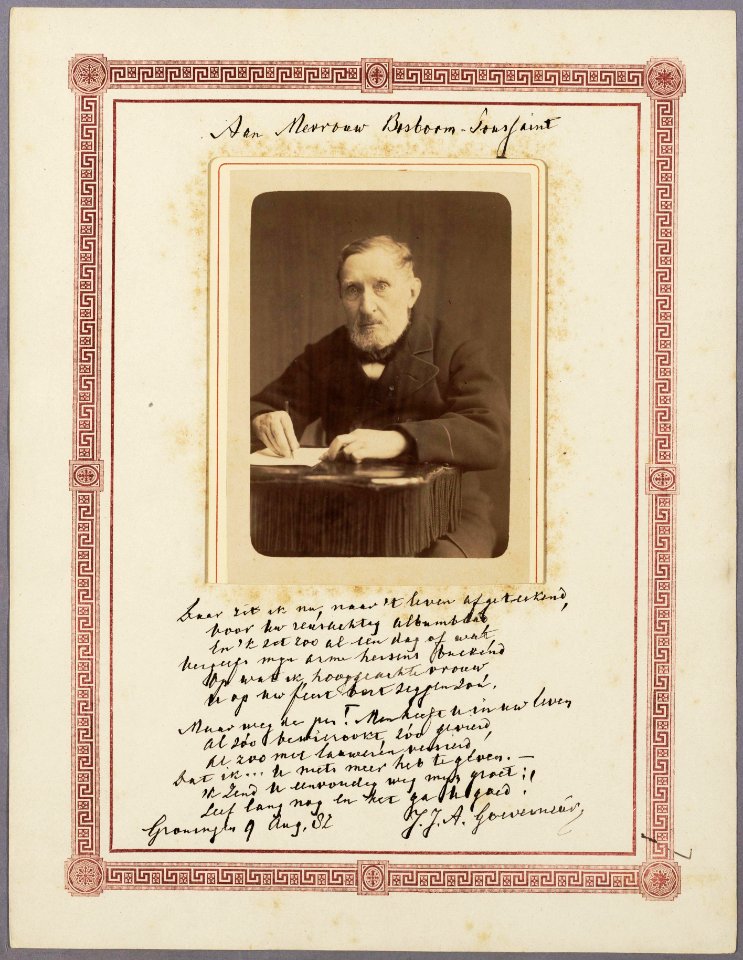 Aan Mevrouw Bosboom-Toussaint
Daar zit ik nu, naar 't leven afgeteekend,
Voor Uw albumblad
En 'k zit zoo al een dag of wat
Vergeefs mijn arme hersens
Op wat ik, hooggeachte vrouw
U op Uw feest zeggen zou.
Maar weg de pen! Men heeft U in Uw leven
Al zóó bewierookt, zóó gevierd
Al zoo met lauweren versierd,
Dat ik... U niets meer heb te geven. —
'k Zend U eenvoudig weg mijn groet:
Leef lang nog en het ga U goed!
Groningen 9 Aug. 82
J. J. A. Goeverneur